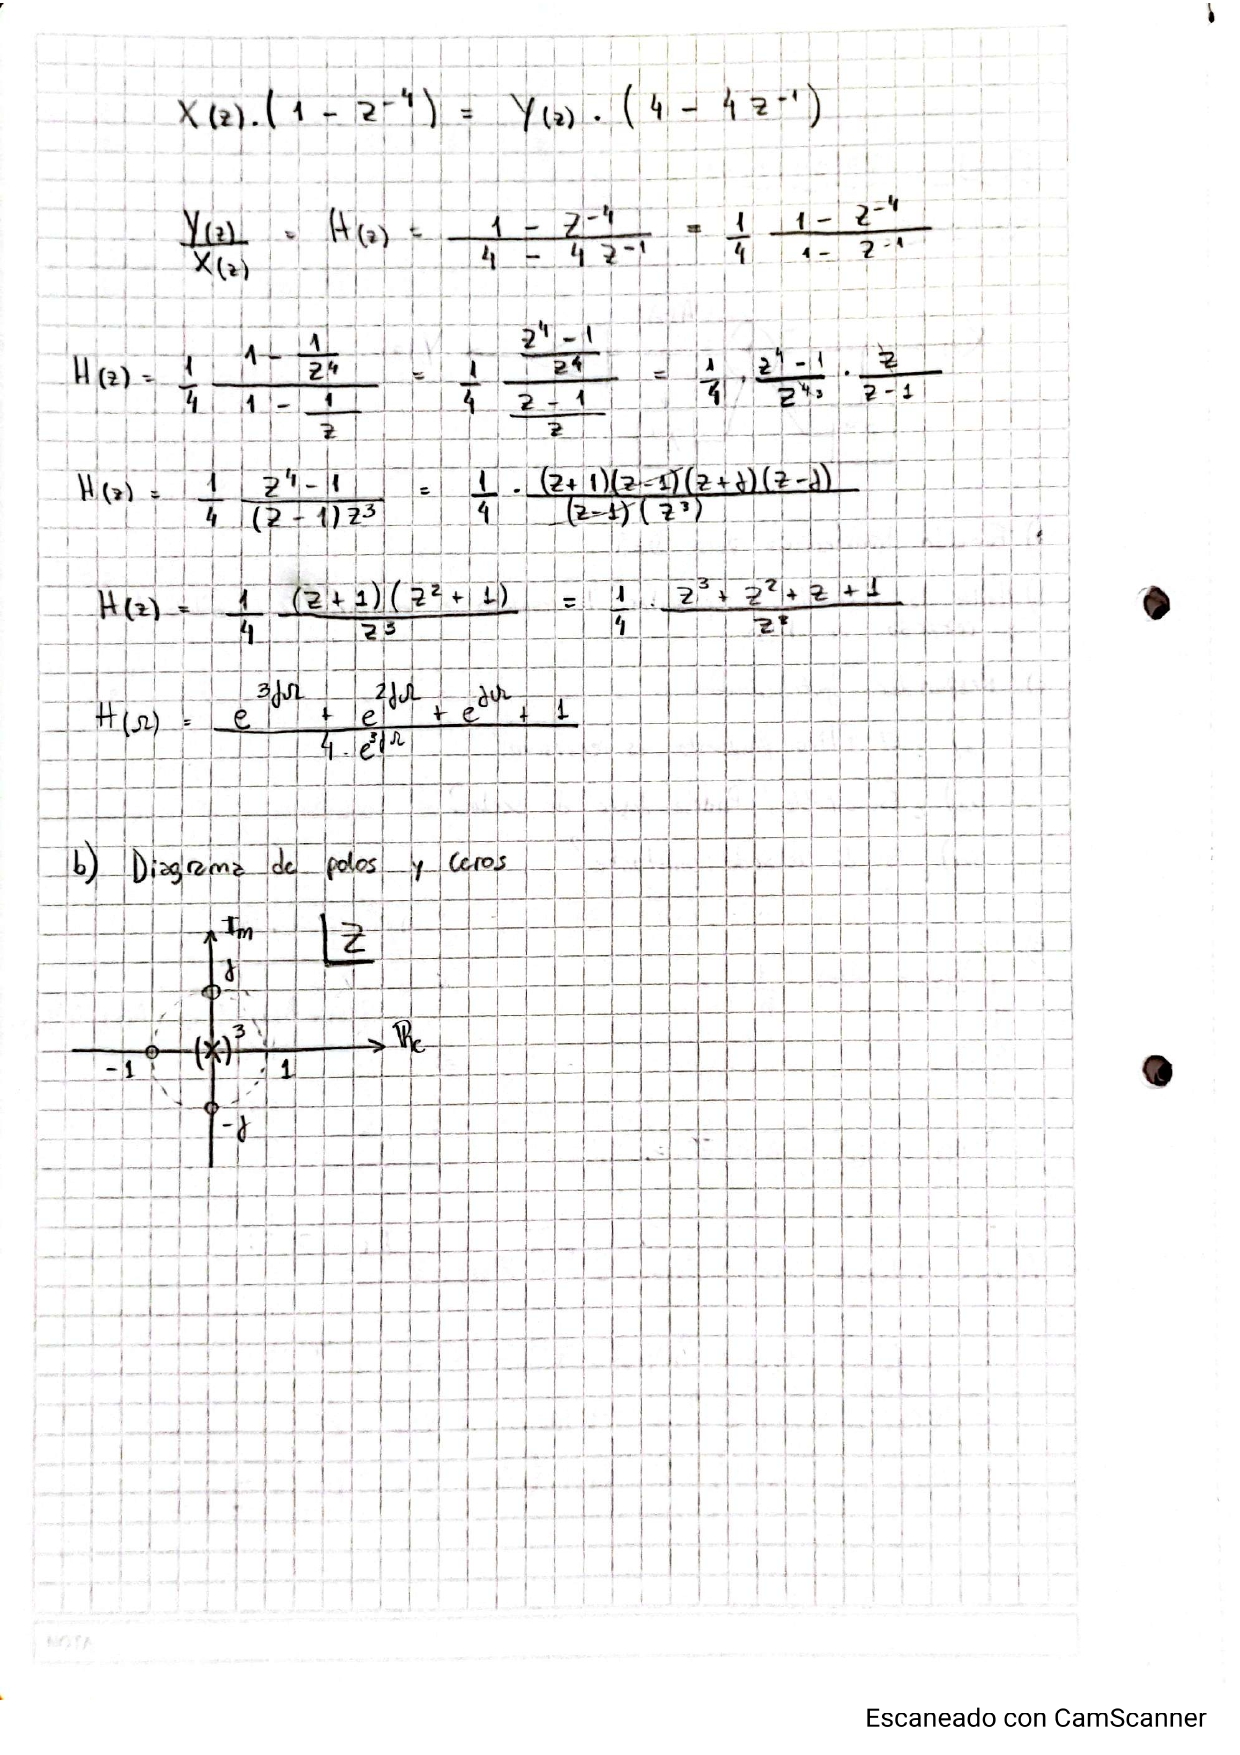 X(z).(1 - z⁻⁴) = Y(z) . (4 - 4z⁻¹)
Y(z)/X(z) = H(z) = (1 - z⁻⁴)/(4 - 4z⁻¹) = 1/4 (1 - z⁻⁴)/(1 - z⁻¹)
H(z) = 1/4 (1 - 1/z⁴)/(1 - 1/z) = 1/4 ((z⁴ - 1)/z⁴)/((z - 1)/z) = 1/4 . (z⁴ - 1)/z⁴³ . z/(z - 1)
H(z) = 1/4 (z⁴ - 1)/((z - 1)z³) = 1/4 . ((z + 1)(z - 1)(z + j)(z - j))/((z - 1)(z³))
H(z) = 1/4 ((z + 1)(z² + 1))/z³ = 1/4 . (z³ + z² + z + 1)/z³
H(Ω) = (e^{3jΩ} + e^{2jΩ} + e^{jΩ} + 1)/(4 . e^{3jΩ})
b) Diagrama de polos y ceros
Im
Z
j
(x)³
Re
-1
1
-j
NOTA
Escaneado con CamScanner